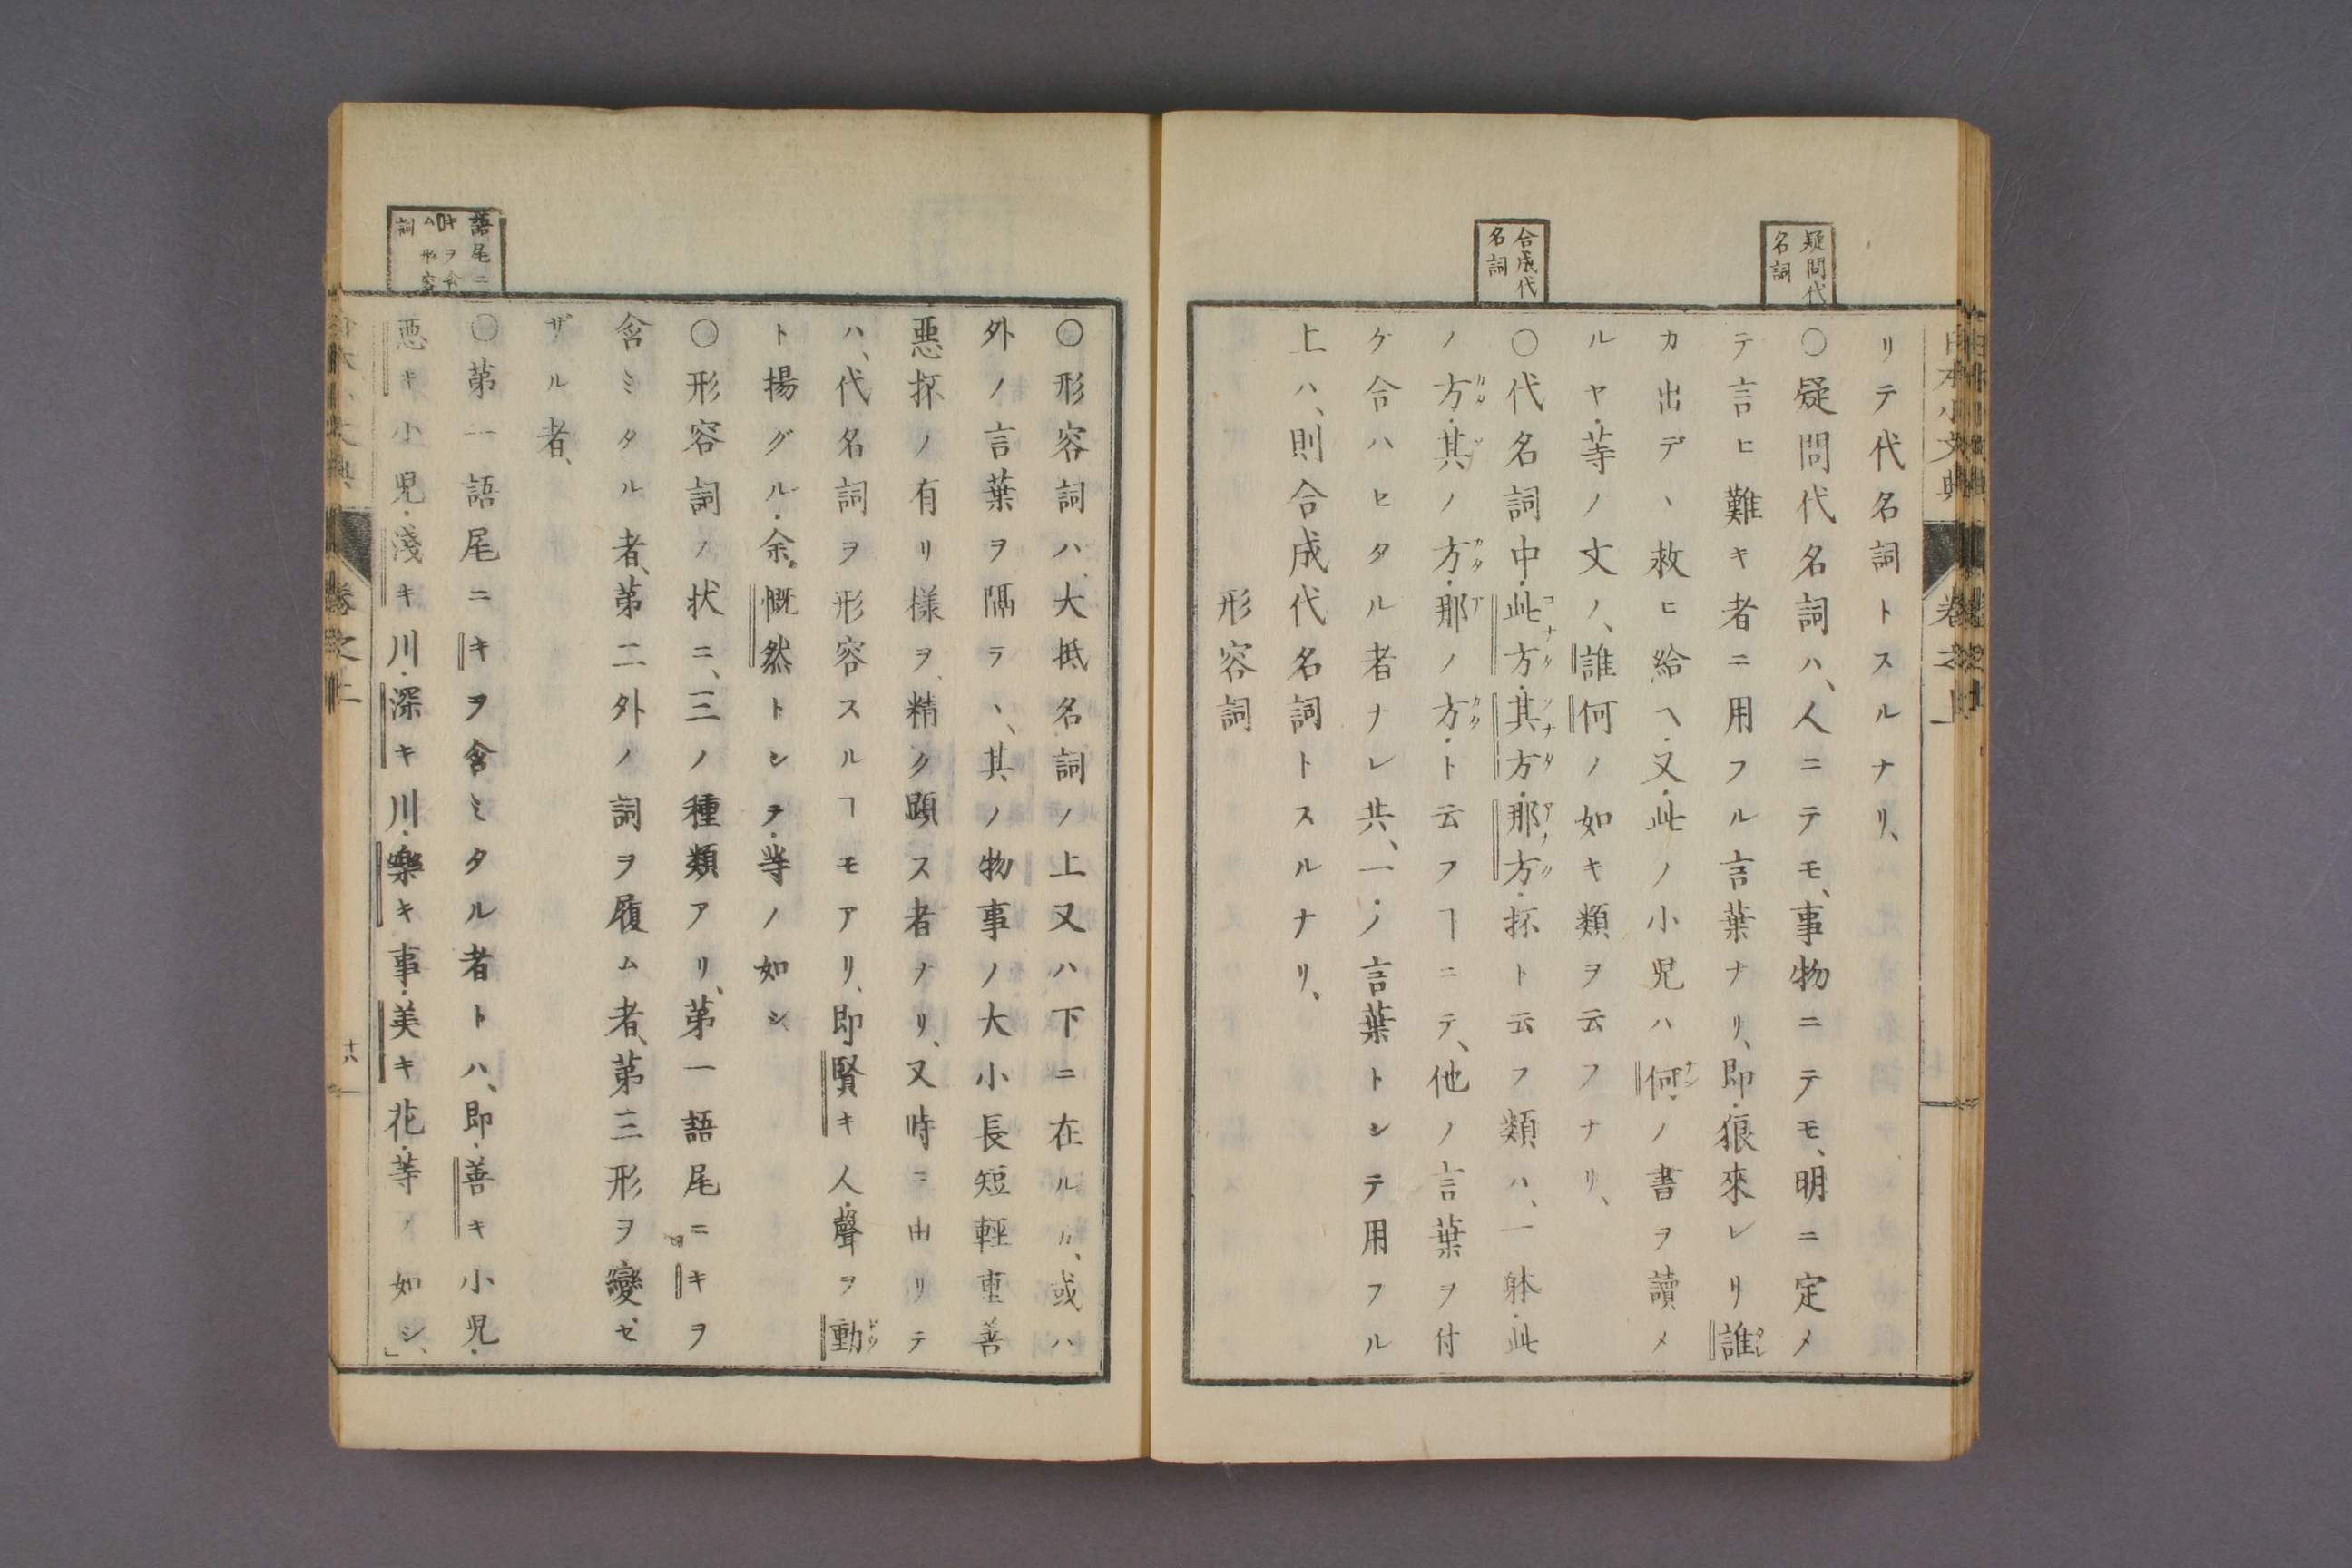 疑問代
名詞
合成代
名詞
リテ代名詞トスルナリ、
○疑問代名詞ハ、人ニテモ、事物ニテモ、明ニ定メ
テ言ヒ難キ者ニ用フル言葉ナリ、即・狼來レリ誰
カ出デヽ救ヒ給ヘ・又・此ノ小児ハ何ノ書ヲ讀メ
ルヤ・等ノ文ノ、誰何ノ如キ類ヲ云フナリ、
○代名詞中・此方・其方・那方・抔ト云フ類ハ、一躰・此
ノ方・其ノ方・那ノ方・ト云フヿニテ、他ノ言葉ヲ付
ゲ合ハセタル者ナレ共、一・ノ言葉トシテ用フル
上ハ、則合成代名詞トスルナリ、
形容詞
語尾ニ
キヲ含
ハ形容
詞
○形容詞ハ、大抵名詞ノ上又ハ下ニ在ル、或ハ
外ノ言葉ヲ隔ラヽ、其ノ物事ノ大小長短輕重善
惡抔ノ有リ樣ヲ、精ク顕ス者ナリ、又時ニ由リテ
ハ、代名詞ヲ形容スルヿモアリ、即賢キ人・聲ヲ動
ト揚グル・余慨然トシヲ・等ノ如シ、
○形容詞ノ状ニ、三ノ種類アリ、第一語尾ニキヲ
含ミタル者、第二外ノ詞ヲ履ム者、第三形ヲ變ゼ
ザル者、
○第一語尾ニキヲ含ミタル者トハ、即・善キ小児・
惡キ小児・淺キ川・深キ川・樂キ事・美キ花・等ノ如シ、」
卷之上
十八